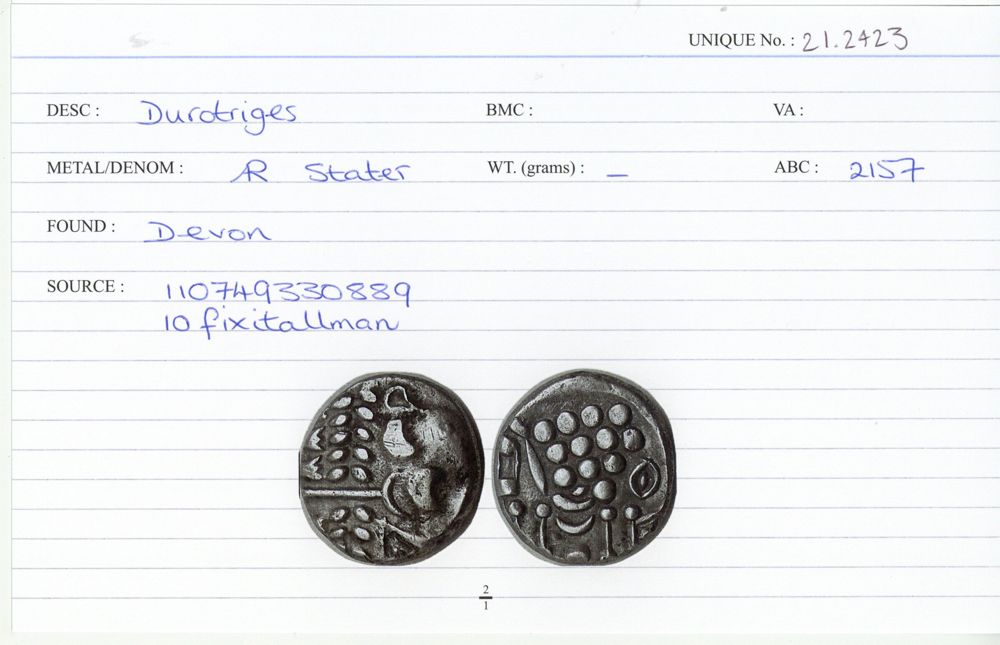 UNIQUE No. : 21.2423
DESC : Durotriges BMC : VA :
METAL/DENOM : AR Stater WT. (grams) : – ABC : 2157
FOUND : Devon
SOURCE : 110749330889
10 fixitallman
2
1